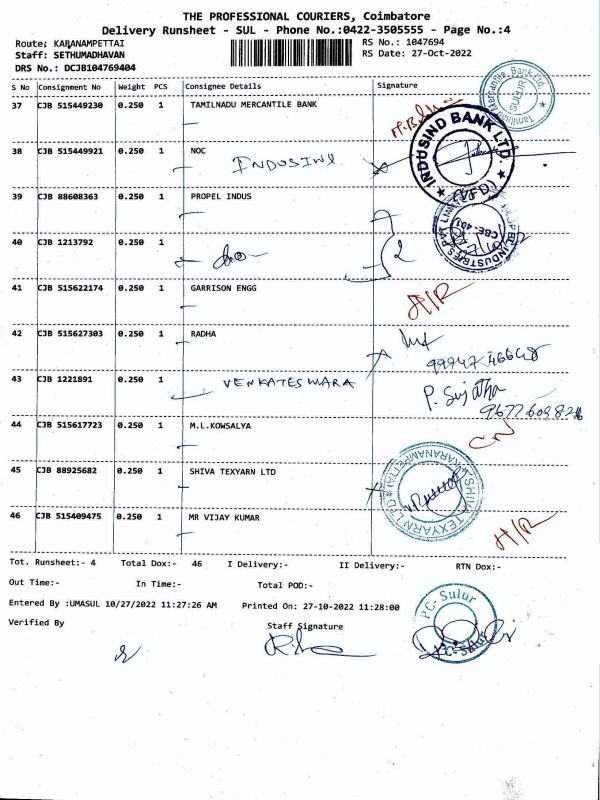 THE PROFESSIONAL COURIERS, Coimbatore
Delivery Runsheet - SUL - Phone No.:0422-3505555 - Page No.:4
Route: KARANAMPETTAI
Staff: SETHUMADHAVAN
DRS No.: DCJB1047669404
RS No.: 1047694
RS Date: 27-Oct-2022
S No Consignment No Weight PCS Consignee Details Signature
37 CJB 515449230 0.250 1 TAMILNADU MERCANTILE BANK
SULUR
38 CJB 515449921 0.250 1 NOC
INDUSIND BANK LTD.
39 CJB 88608363 0.250 1 PROPEL INDUS
40 CJB 1213792 0.250 1
2
41 CJB 515622174 0.250 1 GARRISON ENGG
42 CJB 515627303 0.250 1 RADHA
43 CJB 1221891 0.250 1 VENKATESWARA P. Sujatha
44 CJB 515617723 0.250 1 M.L.KOWSALYA
45 CJB 88925682 0.250 1 SHIVA TEXYARN LTD
SHIVA TEXYARN LTD KARANAMPETTAI
46 CJB 515409475 0.250 1 MR VIJAY KUMAR
Tot. Runsheet:- 4 Total Dox:- 46 I Delivery:- II Delivery:- RTN Dox:-
Out Time:- In Time:- Total POD:-
Entered By :UMASUL 10/27/2022 11:27:26 AM Printed On: 27-10-2022 11:28:00
Verified By Staff Signature
PC-Sulur
PC-Sulur